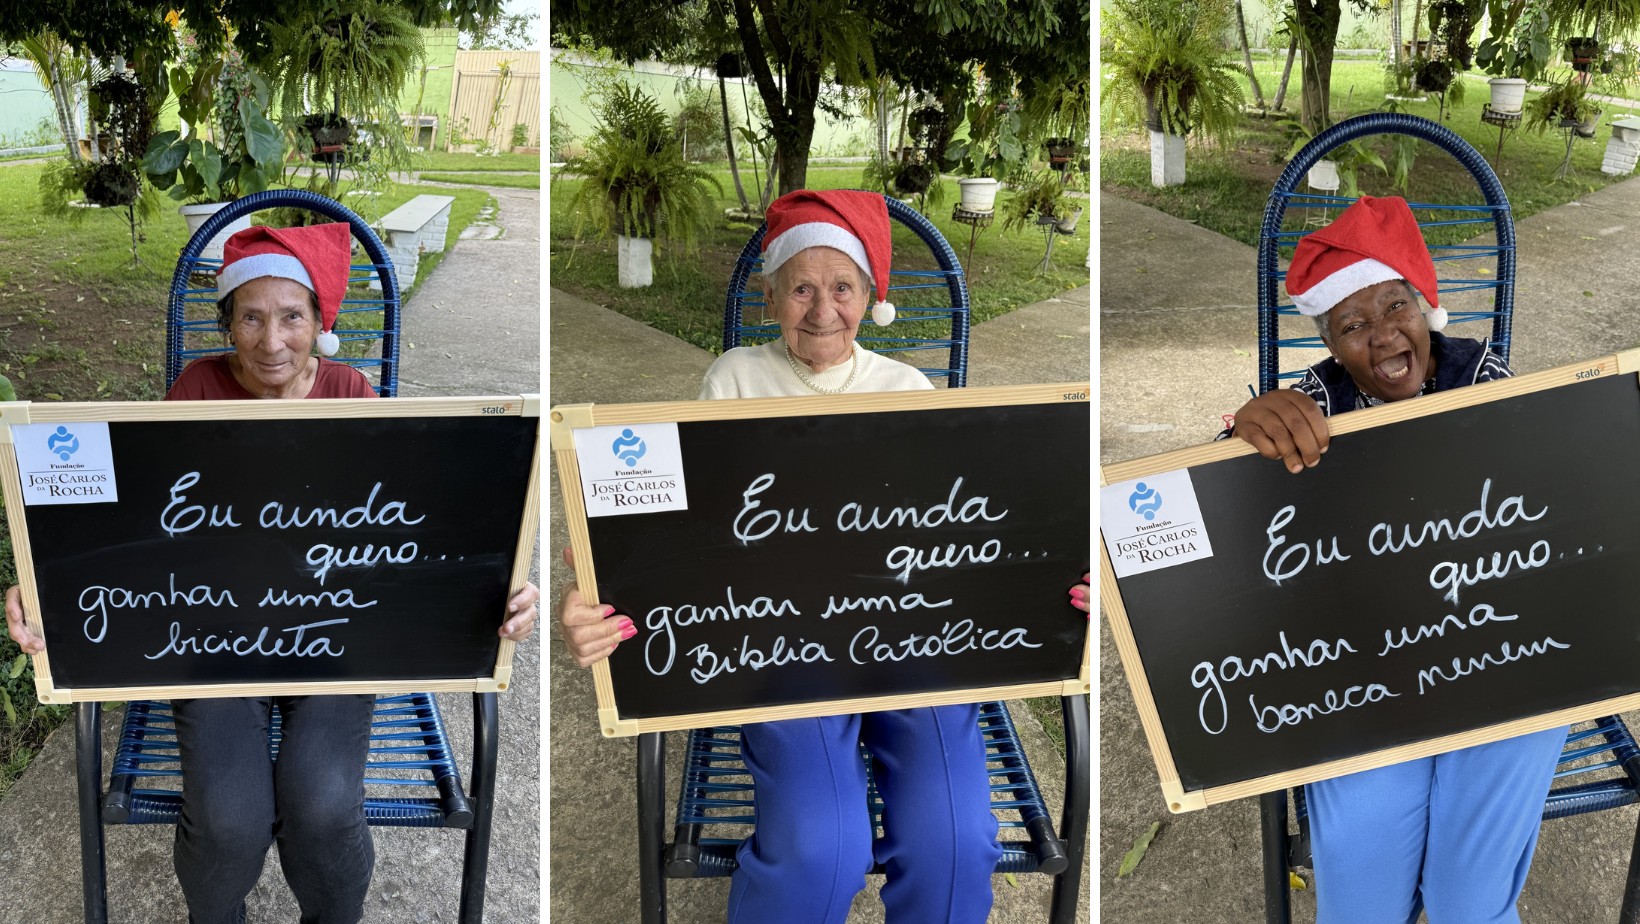 stalo
Fundação
JOSÉ CARLOS
DA ROCHA
Eu ainda
quero...
ganhar uma
bicicleta
stalo
Fundação
JOSÉ CARLOS
DA ROCHA
Eu ainda
quero...
ganhar uma
Bíblia Católica
stalo
Fundação
JOSÉ CARLOS
DA ROCHA
Eu ainda
quero...
ganhar uma
boneca menem